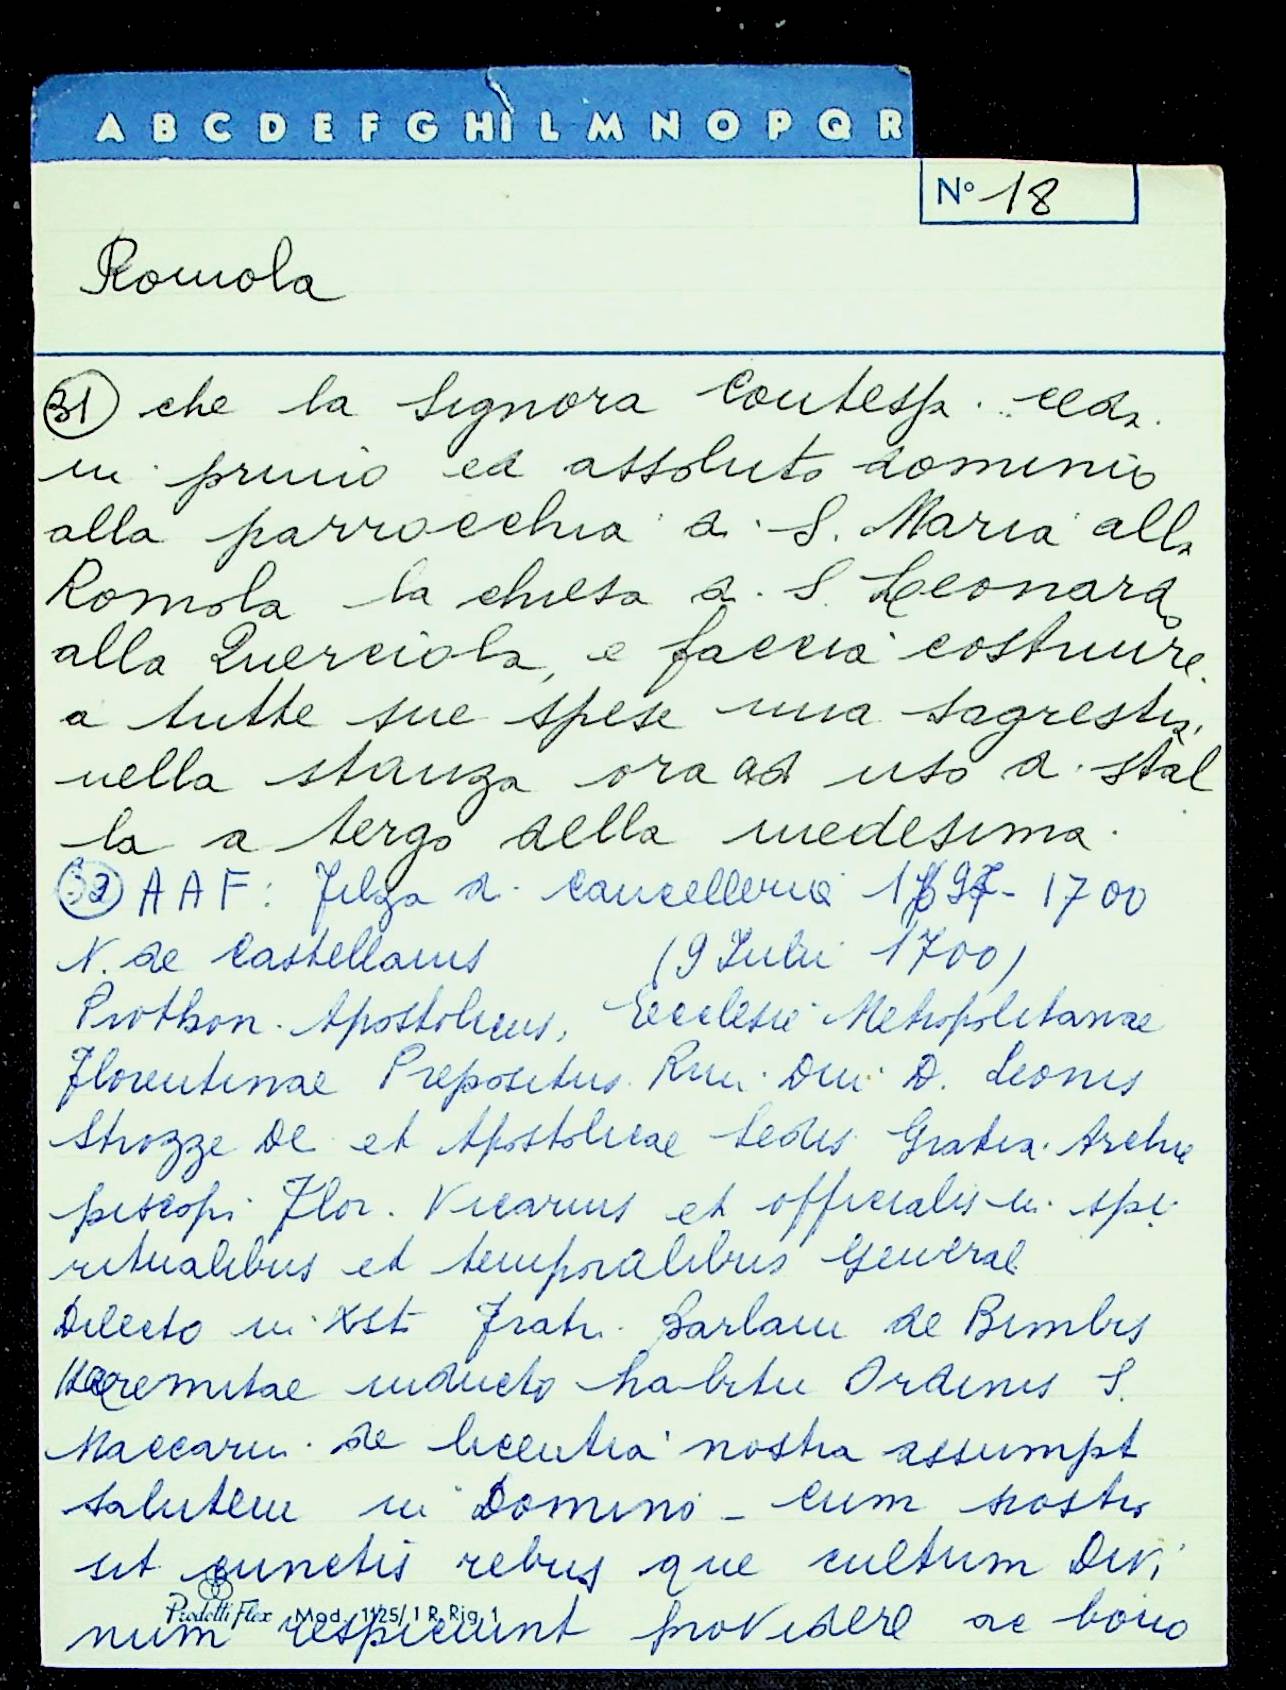 A B C D E F G H I L M N O P Q R
N° 18
Romola
31 che la Signora Contessa ceda
in primo ed assoluto dominio
alla parrocchia di S. Maria alla
Romola la chiesa di S. Leonardo
alla Querciola, e faccia costruire
a tutte sue spese una sagrestia
nella stanza ora ad uso di stal
la a tergo della medesima.
32 AAF: Filza di Cancelleria 1697-1700
N. de Castellanis (9 Julii 1700)
Prothon. Apostolicus, Ecclesie Metropolitanae
Florentinae Prepositus Rmi. Dni. D. Leonis
Strozze De et Apostolicae Sedis Gratia Archie
piscopi Flor. Vicarius et officialis in spi
ritualibus et temporalibus General
Dilecto in Xsto Fratri Barlam de Bimbis
Heremitae inducto habitu Ordinis S.
Maccarii de licentia nostra assumpt
salutem in Domino - cum nostro
sit cunctis rebus que cultum Divi
num respiciunt providere ac bono
Prodotti Flex Mod. 1125/1 R. Rig. 1